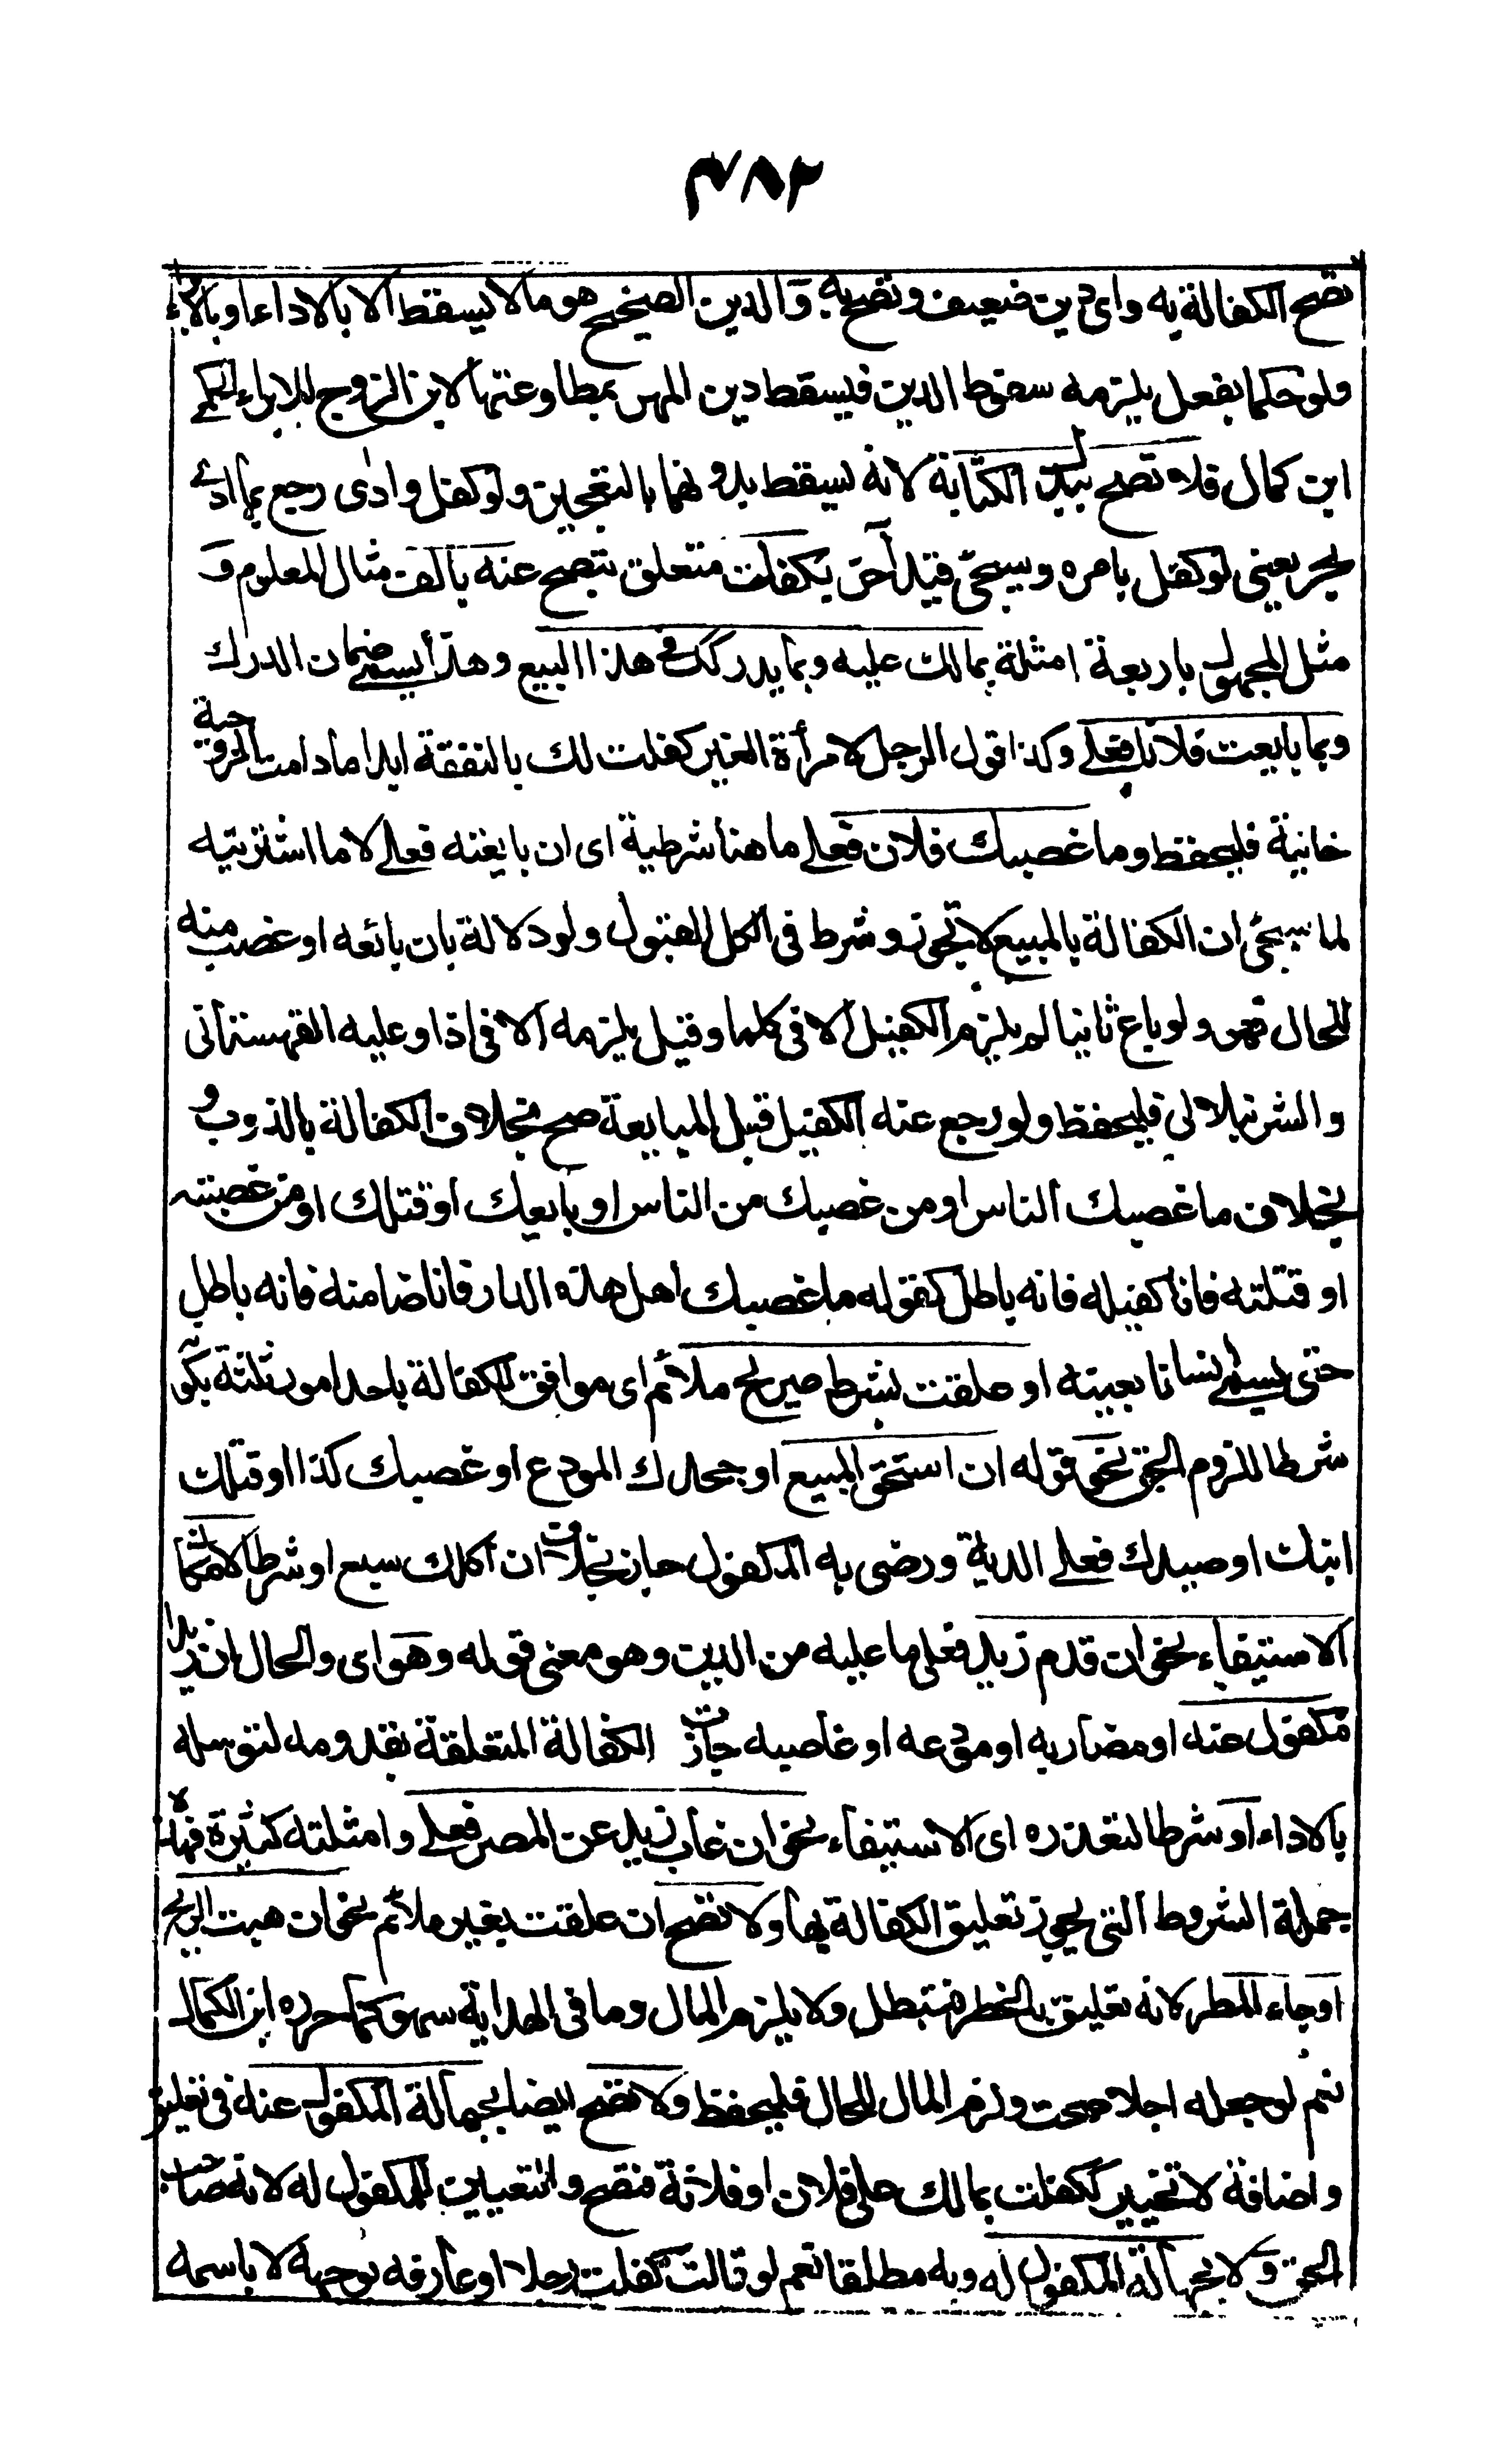 ٣٨٢
تصح الكفالة به واى دين ضعيف وتصح به والدين الصحيح هو مالا يسقط الا بالاداء او بالابراء
ولو حكما بفعل يلزمه سقوط الدين فيسقط دين المهر بمطاوعتها لابن الزوج للابراء الحكمى
ابن كمال فلا تصح ببدل الكتابة لانه يسقط بدونهما بالتعجيز ولو كفل وادى رجع بما ادى
بحر يعنى لو كفل بامره وسيجئ قيد آخر بكفلت متعلق بتصح عنه بالف مثال المعلوم و
مثل المجهول باربعة امثلة بمالك عليه وبما يدركك فى هذا البيع وهذا يسمى ضمان الدرك
وبما بايعت فلانا فعلى وكذا قول الرجل لامرأة الغير كفلت لك بالنفقة ابدا مادامت الزوجية
خانية فليحفظ وما غصبك فلان فعلى ما هنا شرطية اى ان بايعته فعلى لا ما اشتريته
لما سيجئ ان الكفالة بالمبيع لا تجوز وشرط فى الكل القبول ولو دلالة بان بائعه او غصب منه
للحال نهر ولو باع ثانيا لم يلزم الكفيل الا فى كلما وقيل يلزمه الا فى اذا وعليه القهستانى
والشرنبلالى فليحفظ ولو رجع عنه الكفيل قبل المبايعة صح بخلاف الكفالة بالذوب و
بخلاف ما غصبك الناس او من غصبك من الناس او بايعك او قتلك او من غصبته
او قتلته فانا كفيله فانه باطل كقوله ما غصبك اهل هذه الدار فانا ضامنه فانه باطل
حتى يسمى انسانا بعينه او علقت بشرط صريح ملائم اى موافق للكفالة باحد امور ثلثة بكون
شرطا للزوم الحق نحو قوله ان استحق المبيع او جحدك المودع او غصبك كذا او قتلك
ابنك او صيدك فعلى الدية ورضى به المكفول جاز بخلاف ان اكلك سبع او شرطا لامكان
الاستيفاء نحو ان قدم زيد فعلى ما عليه من الدين وهو معنى قوله وهو اى والحال ان زيدا
مكفول عنه او مضاربه او مودعه او غاصبه جازت الكفالة المتعلقة بقدومه لتوسله
بالاداء او شرطا لتعذره اى الاستيفاء نحو ان غاب زيد عن المصر فعلى وامثلته كثيرة فهذه
جملة الشروط التى يجوز تعليق الكفالة بها ولا تصح ان علقت بغير ملائم نحو ان هبت الريح
او جاء المطر لانه تعليق بالخطر فتبطل ولا يلزم المال وما فى الهداية سهو كما حرره ابن الكمال
نعم لو جعله اجلا صحت ولزم المال للحال فليحفظ ولا تصح ايضا بجهالة المكفول عنه فى تعليق
واضافة لا تخيير ككفلت بمالك على فلان او فلانة فتصح والتعيين للمكفول له لانه صاحب
الحق ولا بجهالة المكفول له وبه مطلقا نعم لو قالت كفلت رجلا اوعارفه بوجهه لا باسمه